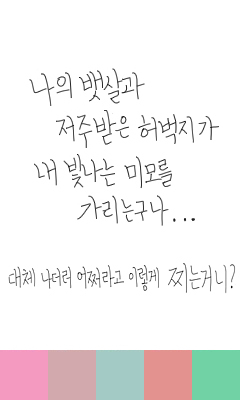 나의 뱃살과
저주받은 허벅지가
내 빛나는 미모를
가리는구나...
대체 나더러 어쩌라고 이렇게 찌는거니?